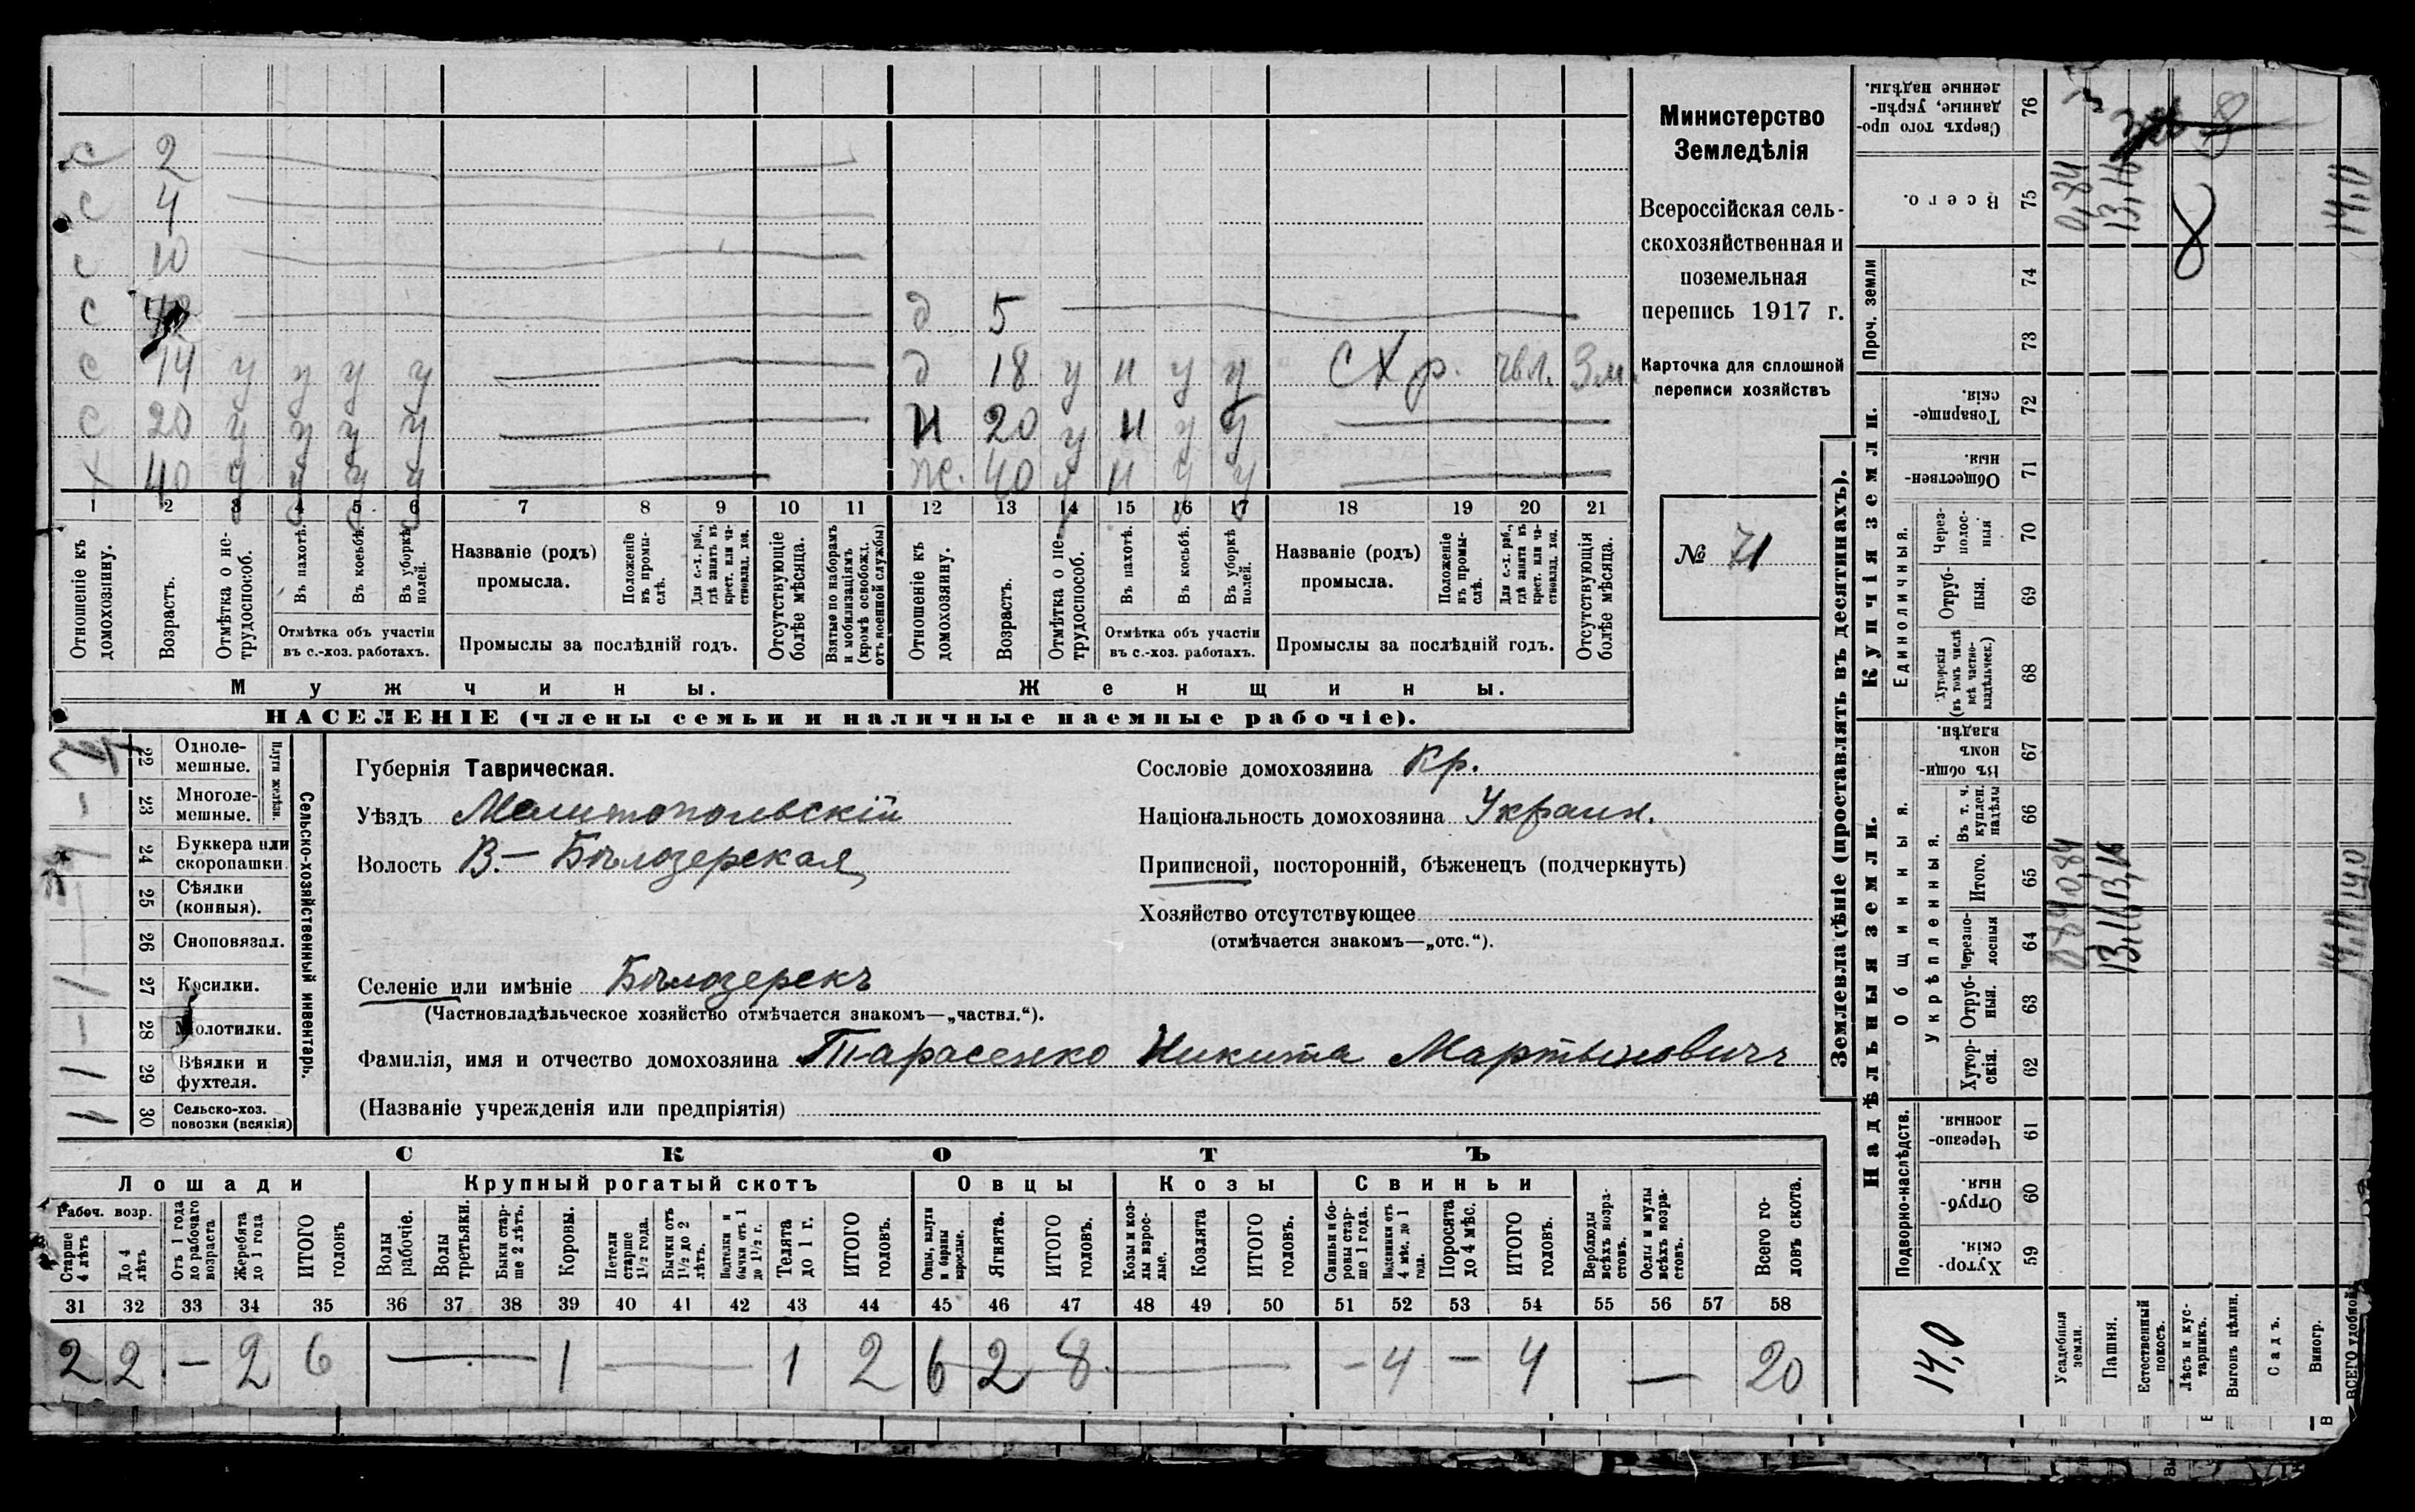 с 2
с 4
с 10
с д 5
с 14 у у у у д 18 у н у у СХр. чвл. Зм.
с 20 у у у у н 20 у н у у
х 40 у у у у ж. 40 у н у у
1 2 3 4 5 6 7 8 9 10 11 12 13 14 15 16 17 18 19 20 21
Отношеніе къ домохозяину.
Возрастъ.
Отмѣтка о не-
трудоспособ.
Въ пахотѣ.
Въ косьбѣ.
Въ уборкѣ
полей.
Отмѣтка объ участіи
въ с.-хоз. работахъ.
Названіе (родъ)
промысла.
Положеніе
въ промы-
слѣ.
Для с.-х. раб.,
гдѣ занятъ въ
крест. или ча-
стновлад. хоз.
Промыслы за послѣдній годъ.
Отсутствующіе
болѣе мѣсяца.
Взятые по наборамъ
и мобилизаціямъ
(кромѣ освобожд.
отъ военной службы)
Отношеніе къ
домохозяину.
Возрастъ.
Отмѣтка о не-
трудоспособ.
Въ пахотѣ.
Въ косьбѣ.
Въ уборкѣ
полей.
Отмѣтка объ участіи
въ с.-хоз. работахъ.
Названіе (родъ)
промысла.
Положеніе
въ промы-
слѣ.
Для с.-х. раб.,
гдѣ занята въ
крест. или ча-
стновлад. хоз.
Промыслы за послѣдній годъ.
Отсутствующія
болѣе мѣсяца.
Мужчины.
Женщины.
НАСЕЛЕНІЕ (члены семьи и наличные наемные рабочіе).
Министерство
Земледѣлія
Всероссійская сель-
скохозяйственная и
поземельная
перепись 1917 г.
Карточка для сплошной
переписи хозяйствъ
№ 71
Плуги желѣзн.
22 Одноле-
мешные.
23 Многоле-
мешные.
24 Буккера или
скоропашки
25 Сѣялки
(конныя).
26 Сноповязал.
27 Косилки.
28 Молотилки.
29 Вѣялки и
фухтеля.
30 Сельско-хоз.
повозки (всякія)
Сельско-хозяйственный инвентарь.
Губернія Таврическая.
Уѣздъ Мелитопольскій
Волость В.- Бѣлозерская
Селеніе или имѣніе Бѣлозерскъ
(Частновладѣльческое хозяйство отмѣчается знакомъ—„частвл.“).
Фамилія, имя и отчество домохозяина Тарасенко Никита Мартыновичъ
(Названіе учрежденія или предпріятія)
Сословіе домохозяина Кр.
Національность домохозяина Украин.
Приписной, посторонній, бѣженецъ (подчеркнуть)
Хозяйство отсутствующее
(отмѣчается знакомъ—„отс.“).
СКОТЪ
Лошади
Крупный рогатый скотъ
Овцы
Козы
Свиньи
Рабоч. возр.
Старше
4 лѣтъ
До 4
лѣтъ
Отъ 1 года
до рабочаго
возраста
Жеребята
до 1 года
ИТОГО
головъ
Волы
рабочіе.
Волы
третьяки.
Быки стар-
ше 2 лѣтъ.
Коровы.
Нетели
старше
1½ года.
Бычки отъ
1½ до 2
лѣтъ.
Подтелки и
бычки отъ 1
до 1½ г.
Телята
до 1 г.
ИТОГО
головъ.
Овцы, валухи
и бараны
взрослые.
Ягнята.
ИТОГО
головъ.
Козы и коз-
лы взрос-
лые.
Козлята
ИТОГО
головъ.
Свиньи и бо-
ровы стар-
ше 1 года.
Подсвинки отъ
4 мѣс. до 1
года.
Поросята
до 4 мѣс.
ИТОГО
головъ.
Верблюды
всѣхъ возра-
стовъ.
Ослы и мулы
всѣхъ возра-
стовъ.
Всего го-
ловъ скота.
31 32 33 34 35 36 37 38 39 40 41 42 43 44 45 46 47 48 49 50 51 52 53 54 55 56 57 58
2 2 — 2 6 — 1 — 1 2 6 2 8 — - 4 - 4 — 20
Землевладѣніе (проставлять въ десятинахъ).
Купчія земли.
Надѣльныя земли.
Сверхъ того про-
данные, укрѣп-
ленные надѣлы.
76
Всего.
75 0,84 13,16 14,0
Проч. земли
74
73
Товарище-
скія.
72
Обществен-
ныя.
71
Единоличныя.
Через-
полос-
ныя
70
Отруб-
ныя.
69
Хуторскія
(въ томъ числѣ
всѣ частно-
владѣльческ.)
68
Общинныя.
Въ общин-
номъ
владѣн.
67
Укрѣпленныя.
Въ т. ч.
куплен.
надѣлы
66
Итого.
65 0,84 13,16 14,0
Черезпо-
лосныя
64 0,84 13,16
Отруб-
ныя.
63
Хутор-
скія.
62
Подворно-наслѣдств.
Черезпо-
лосныя.
61
Отруб-
ныя.
60
Хутор-
скія.
59
14,0
Усадебныя
земли.
Пашня.
Естественный
покосъ.
Лѣсъ и кус-
тарникъ.
Выгонъ цѣлин.
Садъ.
Виногр.
ВСЕГО удобной